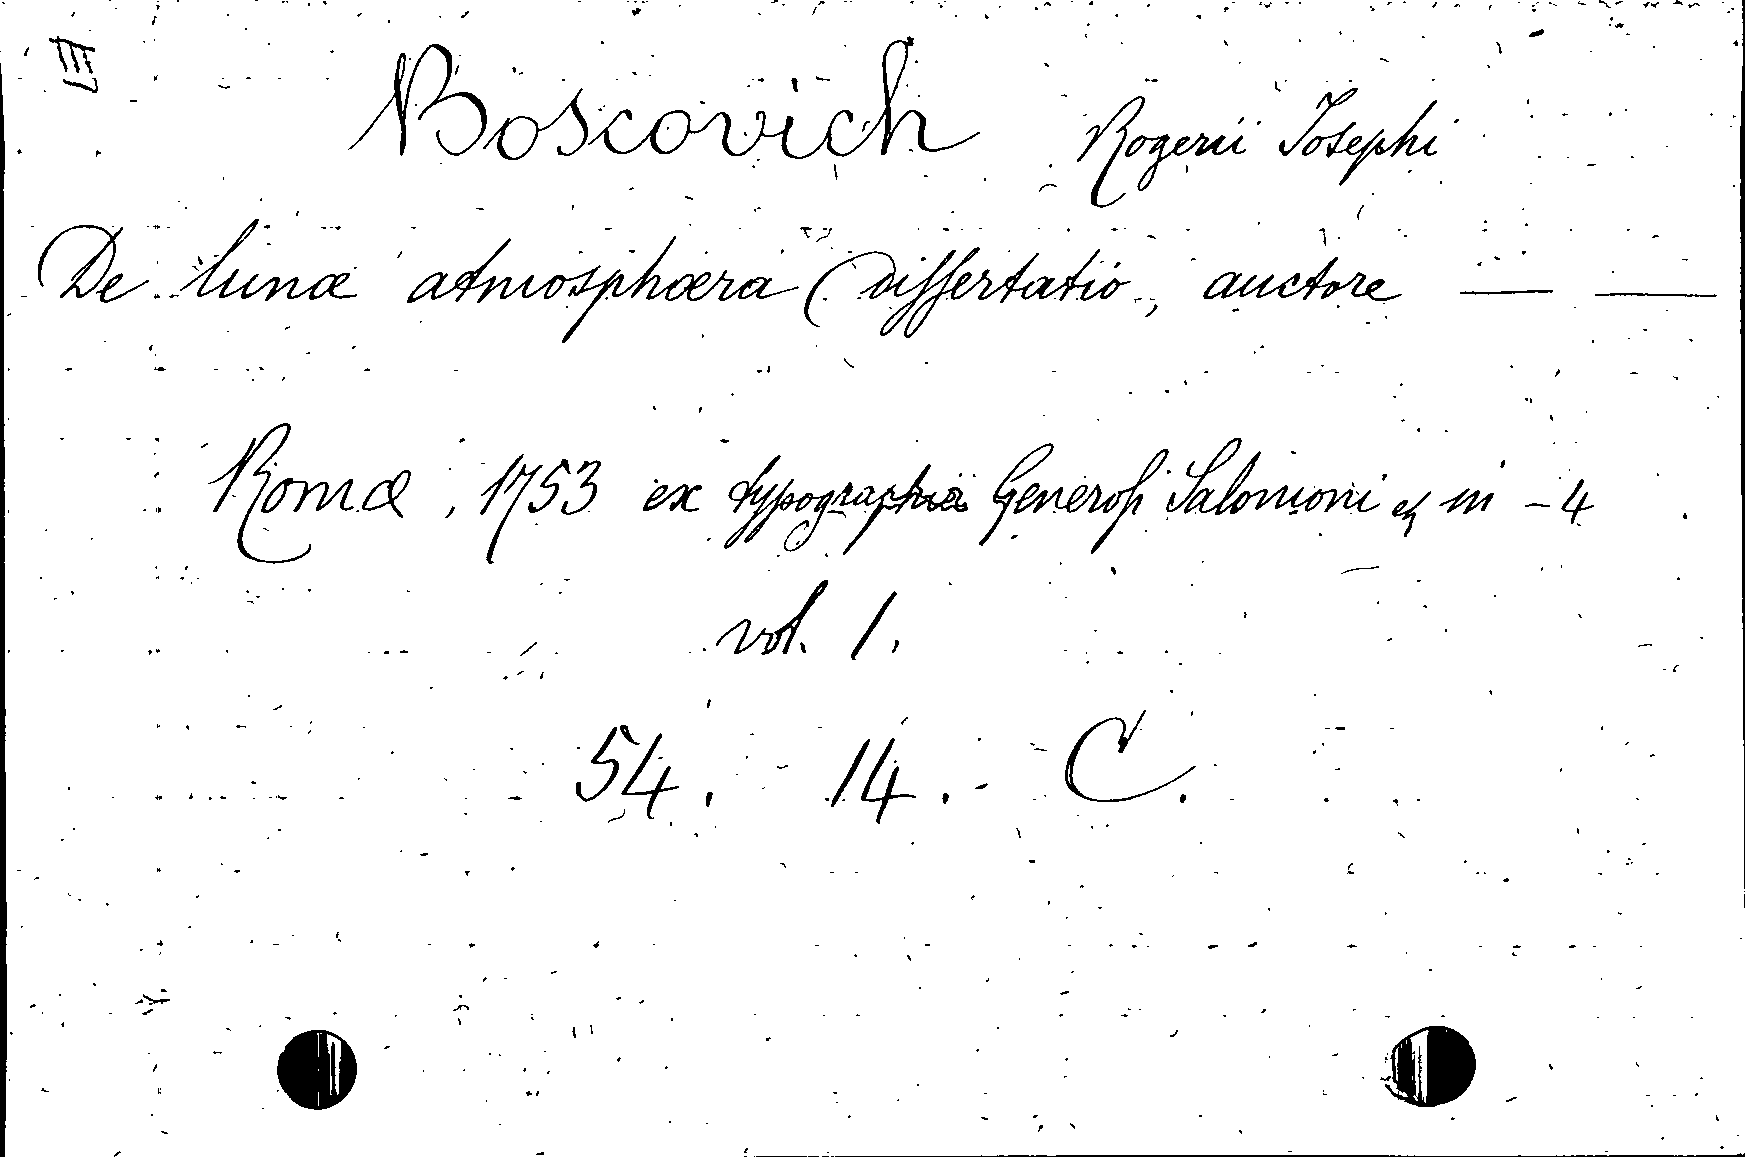 Boscovich Rogerii Josephi
De lunæ atmosphæra Dissertatio, auctore — —
Romæ, 1753 ex typographia Generosi Salomoni in-4
vol. 1.
54. 14. C.